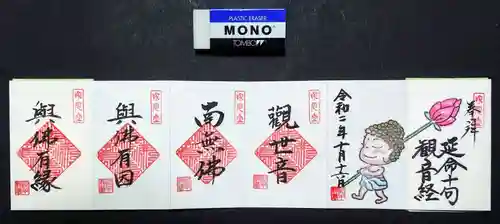 PLASTIC ERASER
MONO
TOMBOW
奉拝
延命十句
觀音経
令和二年十月十二日
觀世音
南無佛
與佛有因
與佛有縁